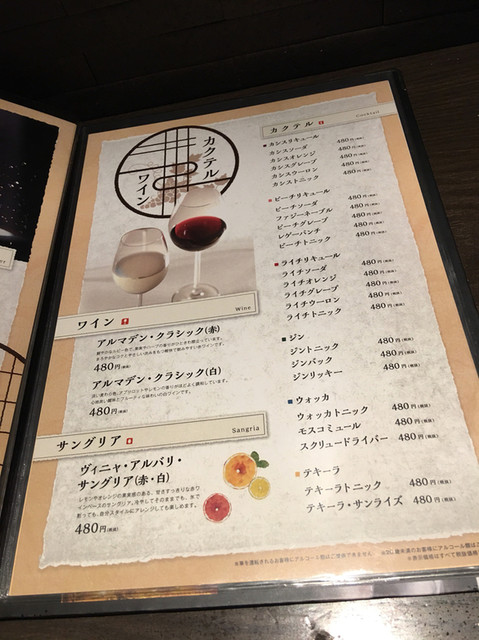 カクテル
ワイン
ワイン
Wine
アルマデン・クラシック(赤)
480円(税抜)
アルマデン・クラシック(白)
480円(税抜)
サングリア
Sangria
ヴィニャ・アルバリ・
サングリア(赤・白)
480円(税抜)
カクテル
Cocktail
カシスリキュール
カシスソーダ 480円(税抜)
カシスオレンジ 480円(税抜)
カシスグレープ 480円(税抜)
カシスウーロン 480円(税抜)
カシストニック 480円(税抜)
ピーチリキュール
ピーチソーダ 480円(税抜)
ファジーネーブル 480円(税抜)
ピーチグレープ 480円(税抜)
レゲーパンチ 480円(税抜)
ピーチトニック 480円(税抜)
ライチリキュール
ライチソーダ 480円(税抜)
ライチオレンジ 480円(税抜)
ライチグレープ 480円(税抜)
ライチウーロン 480円(税抜)
ライチトニック 480円(税抜)
ジン
ジントニック 480円(税抜)
ジンバック 480円(税抜)
ジンリッキー 480円(税抜)
ウォッカ
ウォッカトニック 480円(税抜)
モスコミュール 480円(税抜)
スクリュードライバー 480円(税抜)
テキーラ
テキーラトニック 480円(税抜)
テキーラ・サンライズ 480円(税抜)
※車を運転されるお客様にアルコール類はご提供できません
※表示価格はすべて税抜価格